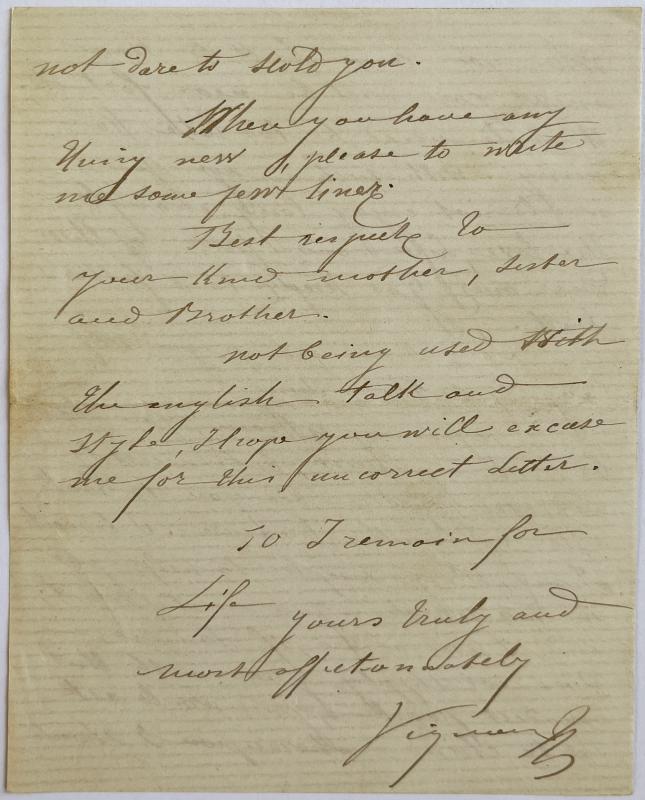 not dare to skold you.
When you have any
thing new, please to write
me some few lines.
Best respects to
your kind mother, sister
and Brother.
not being used With
the english talk and
style, I hope you will excuse
me for this uncorrect Letter.
so I remain for
Life
yours truly and
most affectionately